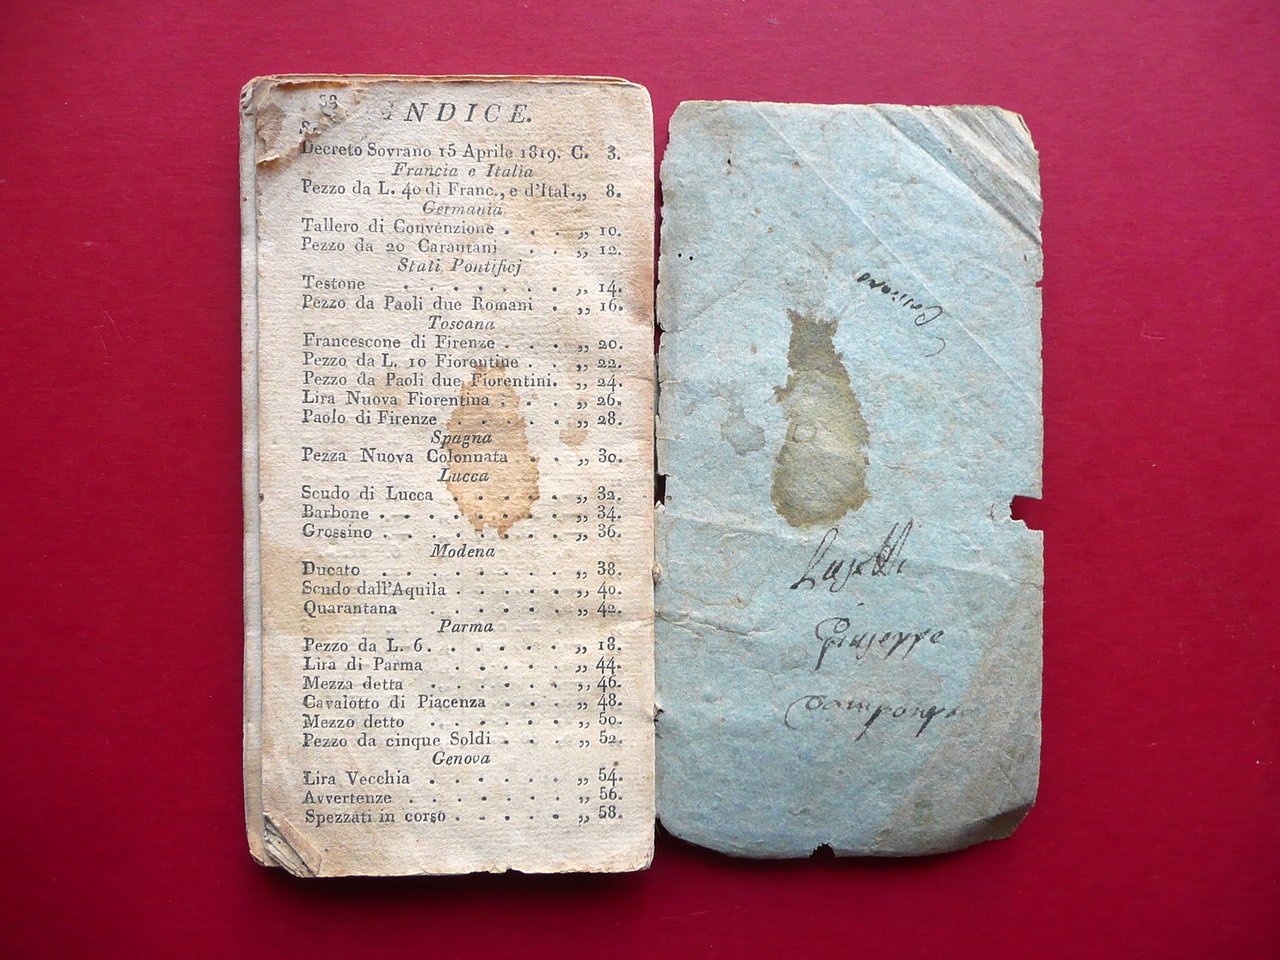 58
INDICE.
Decreto Sovrano 15 Aprile 1819. C. 3.
Francia e Italia
Pezzo da L. 40 di Franc., e d'Ital.,, 8.
Germania
Tallero di Convenzione . . . ,, 10.
Pezzo da 20 Carantani . . ,, 12.
Stati Pontificj
Testone . . . . . . . ,, 14.
Pezzo da Paoli due Romani . ,, 16.
Toscana
Francescone di Firenze . . . ,, 20.
Pezzo da L. 10 Fiorentine . . ,, 22.
Pezzo da Paoli due Fiorentini. ,, 24.
Lira Nuova Fiorentina . . . ,, 26.
Paolo di Firenze . . . . . ,, 28.
Spagna
Pezza Nuova Colonnata . . ,, 30.
Lucca
Scudo di Lucca . . . . . ,, 32.
Barbone . . . . . . . . ,, 34.
Grossino . . . . . . . . ,, 36.
Modena
Ducato . . . . . . . . ,, 38.
Scudo dall'Aquila . . . . . ,, 40.
Quarantana . . . . . . ,, 42.
Parma
Pezzo da L. 6. . . . . . ,, 18.
Lira di Parma . . . . . . ,, 44.
Mezza detta . . . . . . ,, 46.
Cavalotto di Piacenza . . . . ,, 48.
Mezzo detto . . . . . . ,, 50.
Pezzo da cinque Soldi . . . ,, 52.
Genova
Lira Vecchia . . . . . . ,, 54.
Avvertenze . . . . . . . ,, 56.
Spezzati in corso . . . . . ,, 58.
Giuseppe